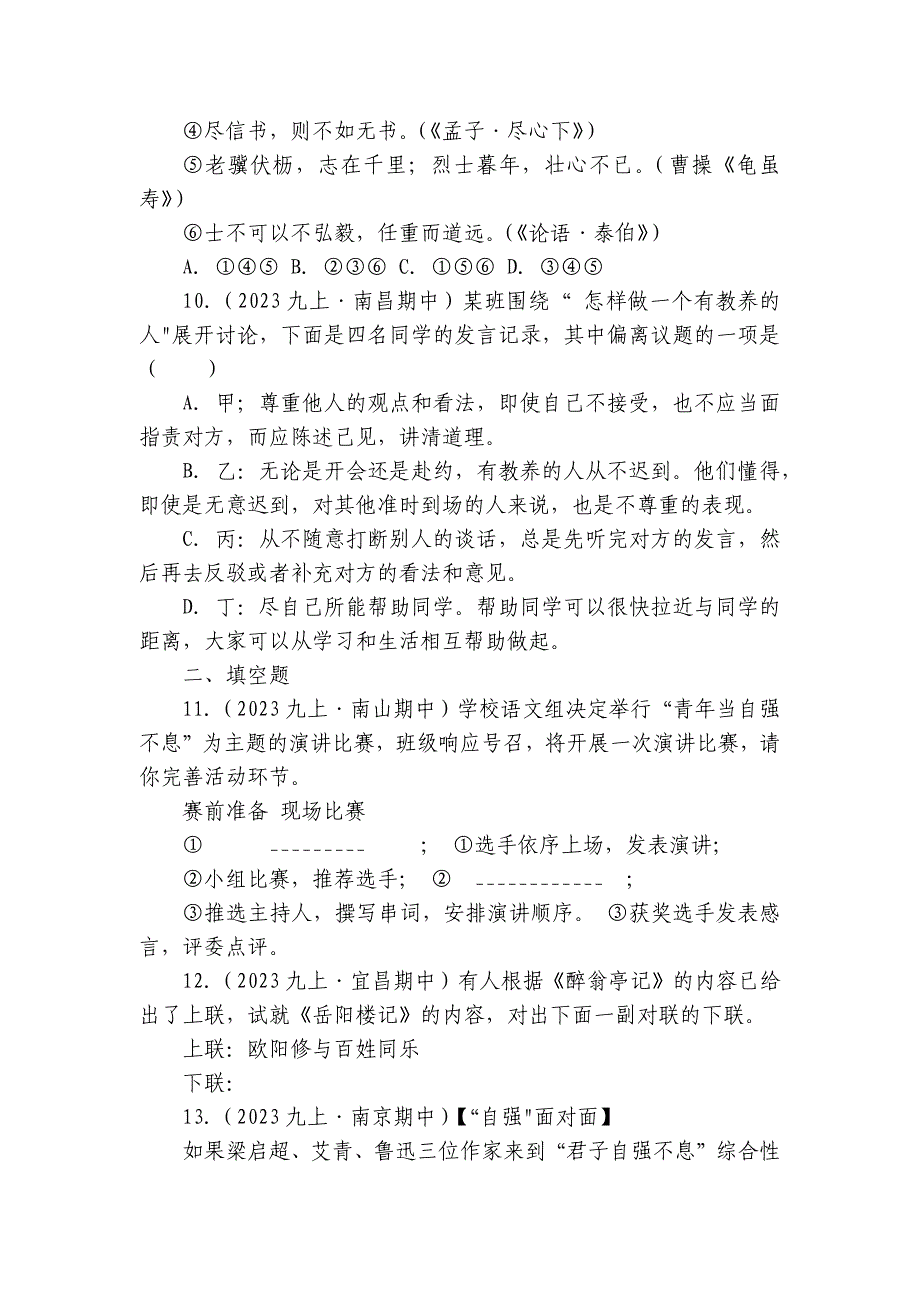 ④尽信书，则不如无书。（《孟子·尽心下》）
⑤老骥伏枥，志在千里；烈士暮年，壮心不已。（曹操《龟虽
寿》）
⑥士不可以不弘毅，任重而道远。（《论语·泰伯》）
A. ①④⑤ B. ②③⑥ C. ①⑤⑥ D. ③④⑤
10.（2023九上·南昌期中）某班围绕“ 怎样做一个有教养的
人"展开讨论，下面是四名同学的发言记录，其中偏离议题的一项是
（ ）
A. 甲；尊重他人的观点和看法，即使自己不接受，也不应当面
指责对方，而应陈述己见，讲清道理。
B. 乙：无论是开会还是赴约，有教养的人从不迟到。他们懂得，
即使是无意迟到，对其他准时到场的人来说，也是不尊重的表现。
C. 丙：从不随意打断别人的谈话，总是先听完对方的发言，然
后再去反驳或者补充对方的看法和意见。
D. 丁：尽自己所能帮助同学。帮助同学可以很快拉近与同学的
距离，大家可以从学习和生活相互帮助做起。
二、填空题
11.（2023九上·南山期中）学校语文组决定举行“青年当自强
不息”为主题的演讲比赛，班级响应号召，将开展一次演讲比赛，请
你完善活动环节。
赛前准备 现场比赛
① _________ ； ①选手依序上场，发表演讲；
②小组比赛，推荐选手； ② ____________ ；
③推选主持人，撰写串词，安排演讲顺序。 ③获奖选手发表感
言，评委点评。
12.（2023九上·宜昌期中）有人根据《醉翁亭记》的内容已给
出了上联，试就《岳阳楼记》的内容，对出下面一副对联的下联。
上联：欧阳修与百姓同乐
下联：
13.（2023九上·南京期中）【“自强"面对面】
如果梁启超、艾青、鲁迅三位作家来到“君子自强不息”综合性